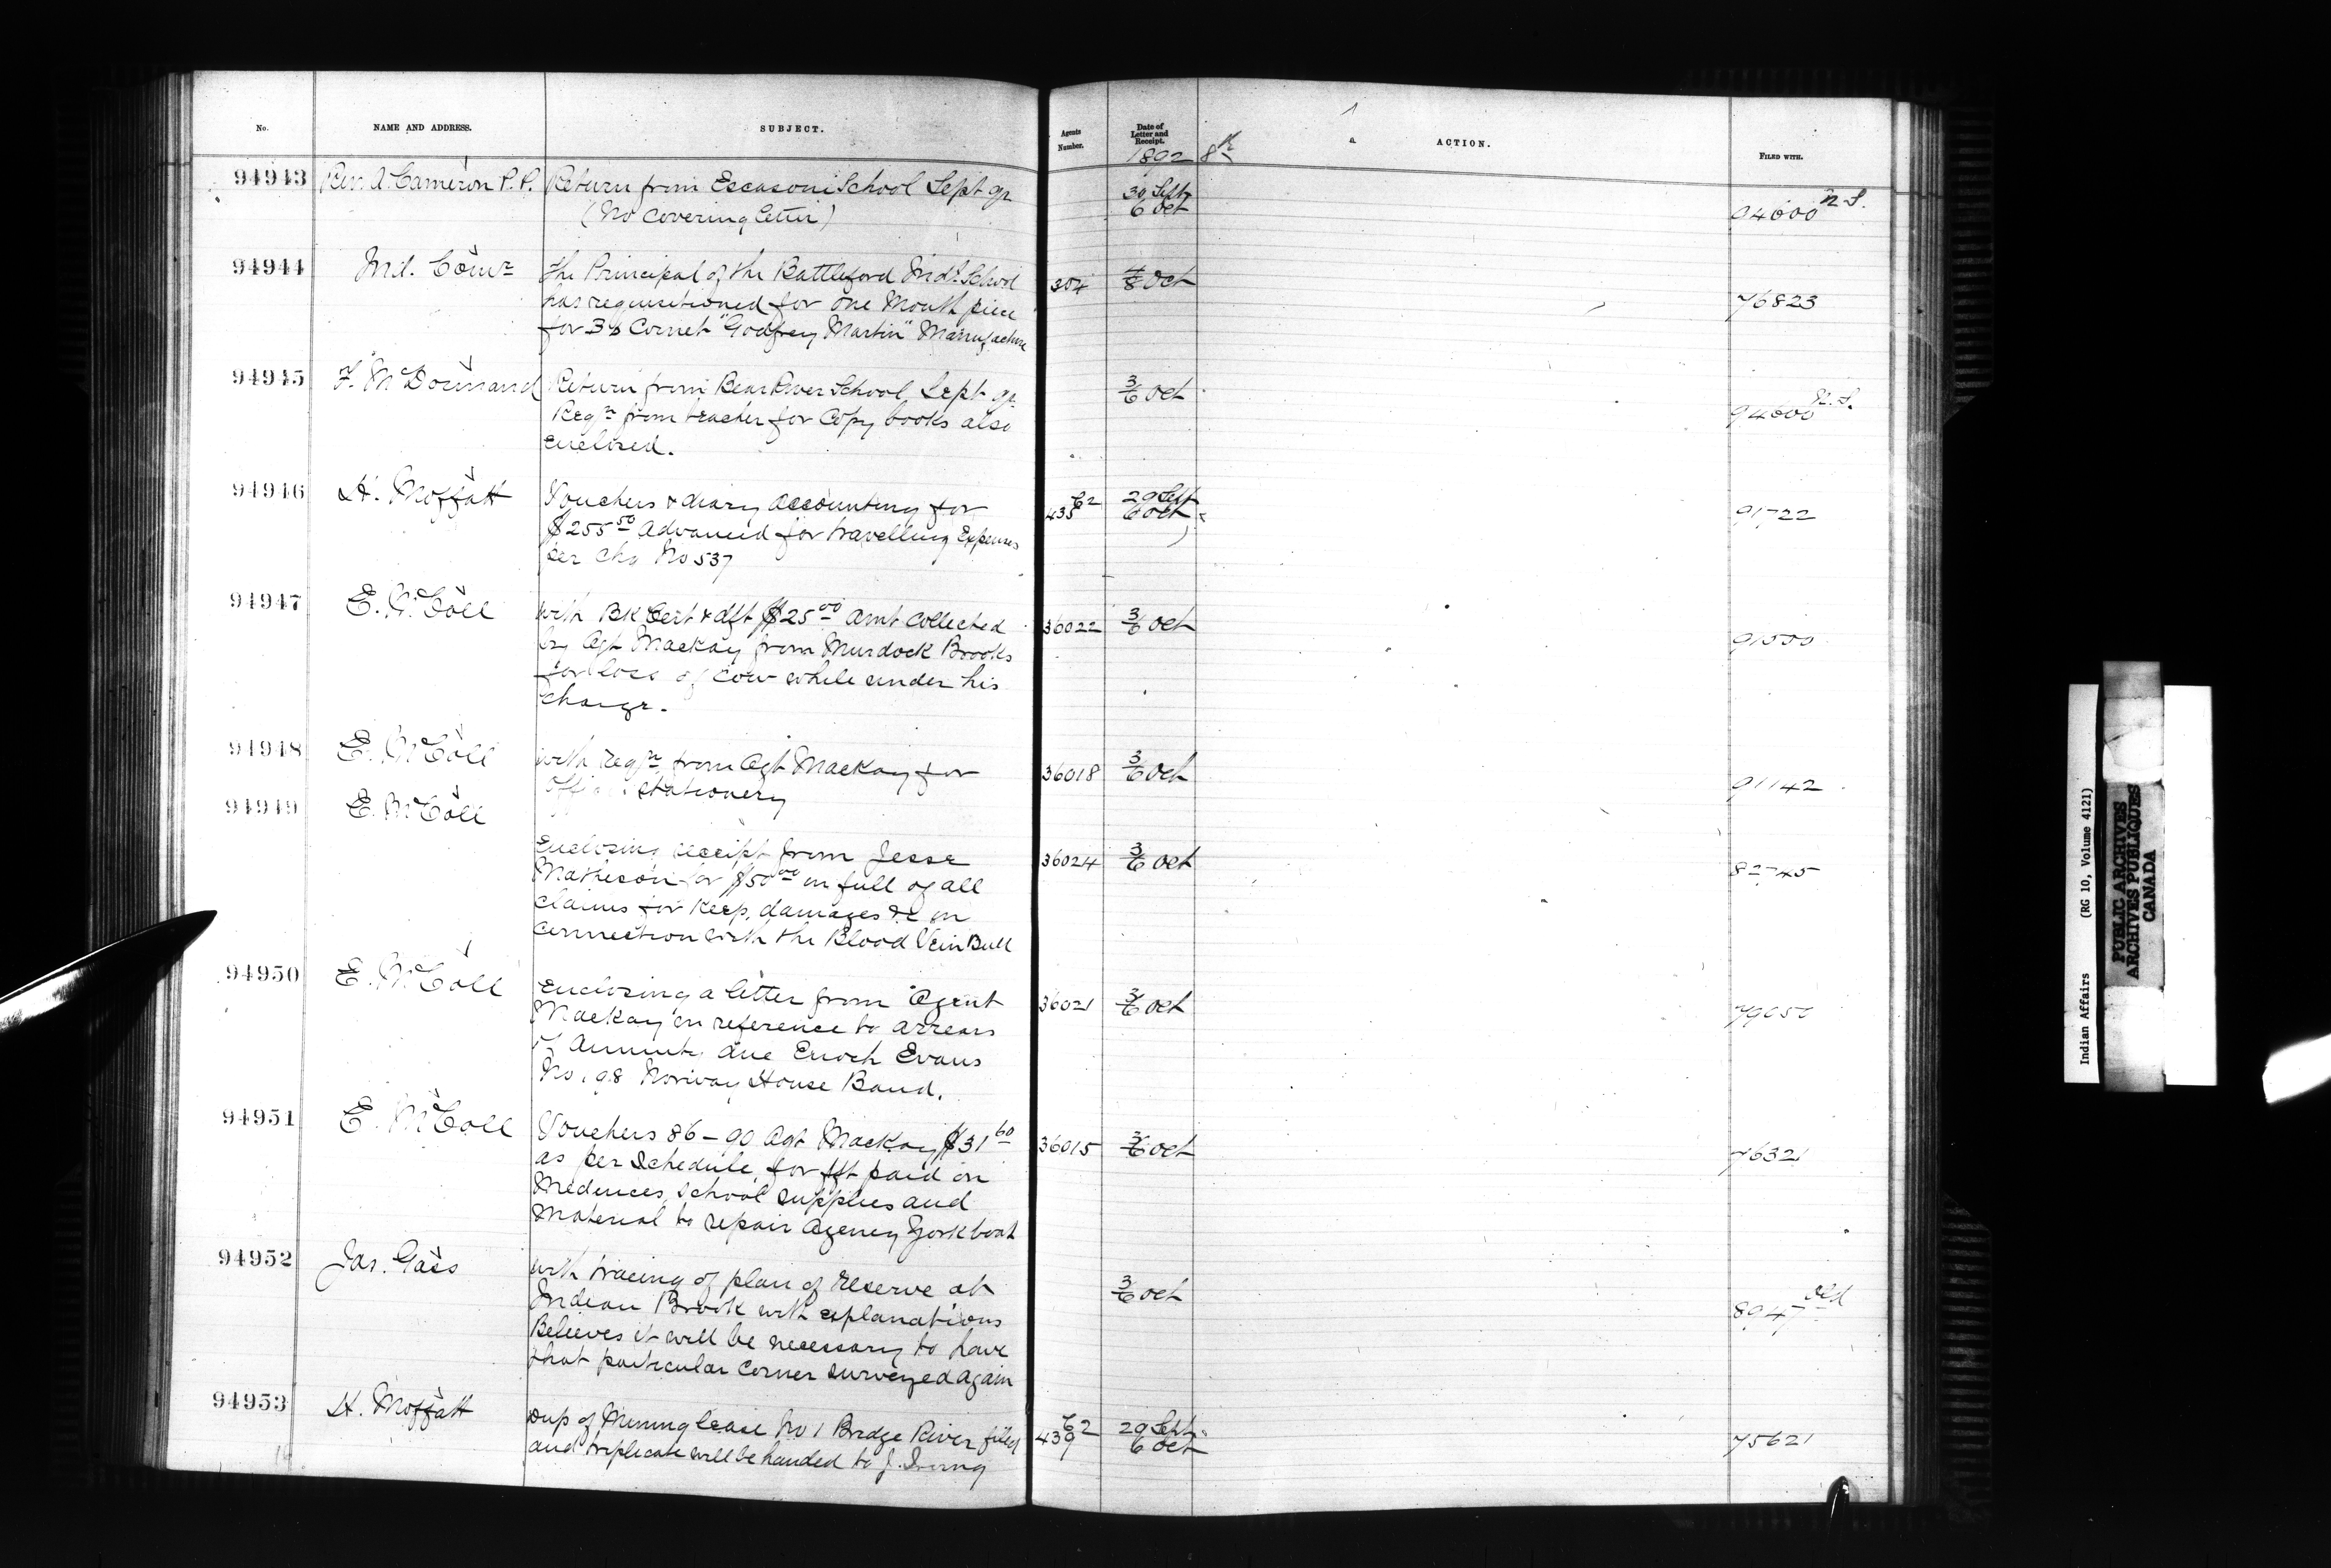 No.
NAME AND ADDRESS.
SUBJECT.
Agents Number.
Date of Letter and Receipt.
ACTION.
FILED WITH.
1892
94943 Rev. A. Cameron P.P. Return from Escasoni School Sept qr 30 Sept
(No covering letter) 6 Oct 94600 N.S.
94944 Ind. Comr The Principal of the Battleford Indl. School 304 4/8 Oct
has requisitioned for one Mouth piece 76823
for Bb Cornet "Godfrey Martin" Manufacture
94945 F. McDormand Return from Bear River School Sept qr 3/6 Oct
Reqn from teacher for Copy books also 94600 N.S.
enclosed.
94946 H. Moffatt Vouchers & diary accounting for 435 C2 29 Sept
$255.50 Advanced for travelling Expenses 6 Oct 91722
per chq No 537
94947 E. McColl with Bk Cert & dft $25.00 amt collected 36022 3/6 Oct
by Agt Mackay from Murdock Brooks 91500
for loss of Cow while under his
charge.
94948 E. McColl with reqn from Agt Mackay for 36018 3/6 Oct
stationery 91142
94949 E. McColl
Enclosing receipt from Jesse 36024 3/6 Oct
Matheson for $50.00 in full of all 82745
claims for keep, damages &c in
connection with the Blood Vein Bull
94950 E. McColl Enclosing a letter from Agent 36021 3/6 Oct
Mackay in reference to arrears 79050
of Annuity due Enoch Evans
No. 98 Norway House Band.
94951 E. McColl Vouchers 86-90 Agt Mackay $31.60 36015 3/6 Oct
as per schedule, for frt paid on 76321
Medences, school supplies and
Material to repair Agency Yorkboat
94952 Jas. Gass with tracing of plan of reserve at 3/6 Oct
Indian Brook with explanations 8947 old
Believes it will be necessary to have
that particular Corner surveyed again
94953 H. Moffatt Dup of Mining lease No 1 Bridge River filed 439 C2 29 Sept
and triplicate will be handed to J. Irving 6 Oct 75621
Indian Affairs (RG 10, Volume 4121)
PUBLIC ARCHIVES
ARCHIVES PUBLIQUES
CANADA